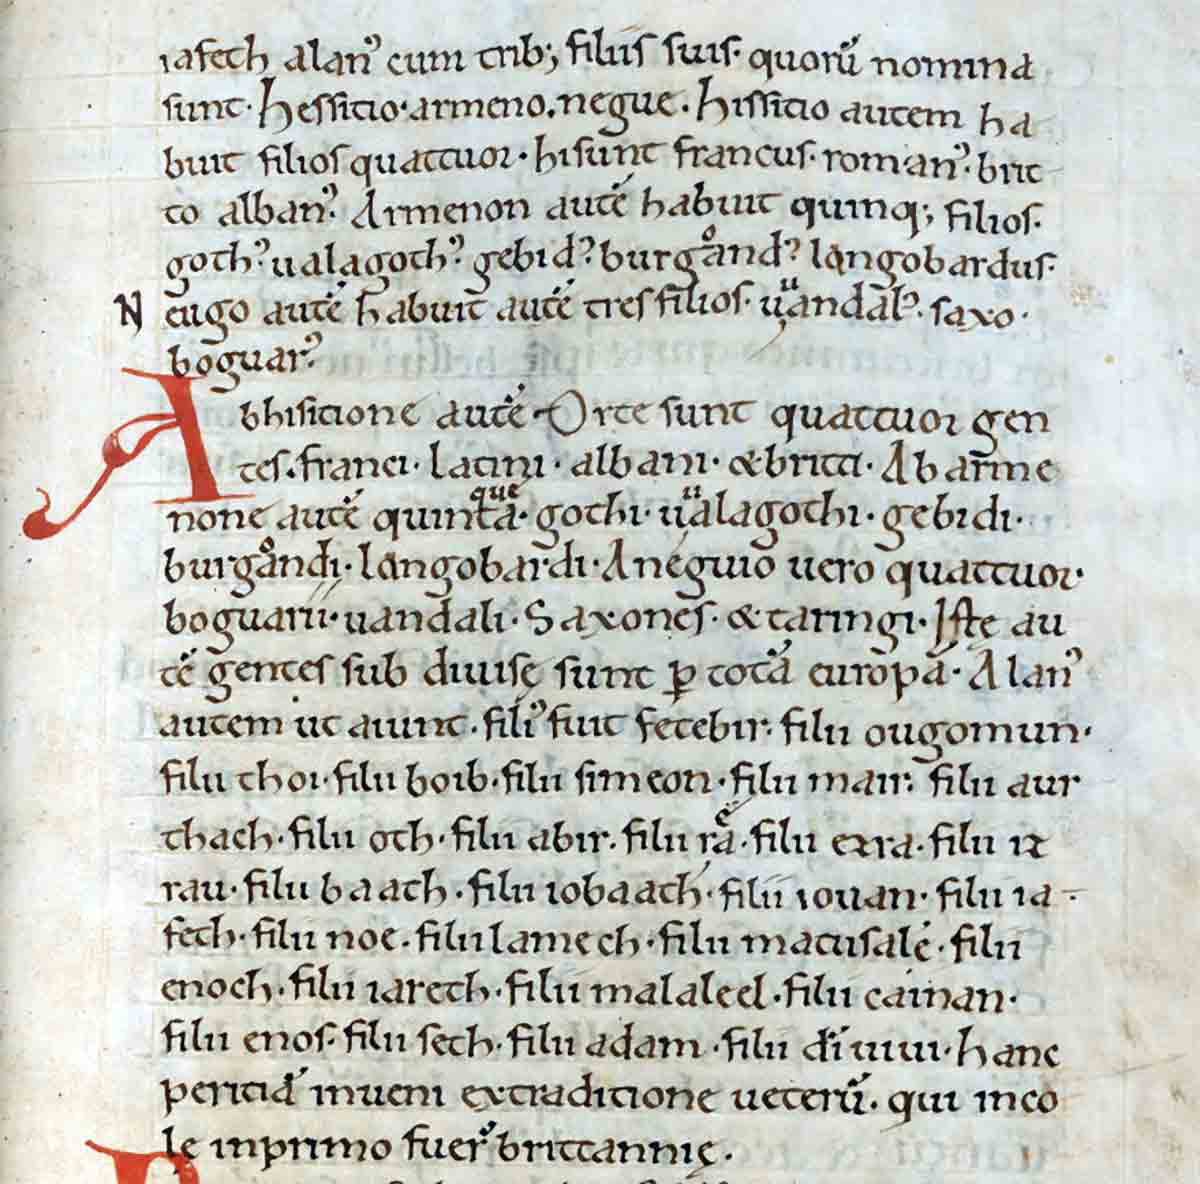 iafeth alanꝰ cum trib; filiis suis· quorū nomina
sunt· hessitio·armeno.negue· hissitio autem ha
buit filios quattuor· hi sunt francus· romanꝰ· brit
to albanꝰ· Armenon autē habuit quinq; filios·
gothꝰ· ualagothꝰ· gebidꝰ· burgandꝰ· langobardus·
N eugo autē habuit autē tres filios· uuandalꝰ· saxo·
boguarꝰ·
A bhisitione autē Orte sunt quattuor gen
tes·franci· latini· albani· & britti· Ab arme
none autē quinta· que gothi· uualagothi· gebidi·
burgandi· langobardi· A neguio uero quattuor·
boguarii· uandali· Saxones· & taringi· Iste au
tē gentes sub diuisę sunt ꝑ totā europā· Alanꝰ
autem ut aiunt· filiꝰ fuit fetebir· filii ougomun·
filii thoi· filii boib· filii simeon· filii mair· filii aur
thach· filii oth· filii abir· filii rea· filii ezra· filii iz
rau· filii baath· filii iobaath· filii iouan· filii ia
feth· filii noe· filii lamech· filii matusale· filii
enoch· filii iareth· filii malaleel· filii cainan·
filii enos· filii seth· filii adam· filii dī uiui· hanc
peritiā inueni extraditione ueterū· qui inco
lę inprimo fuerꝰ brittannię·